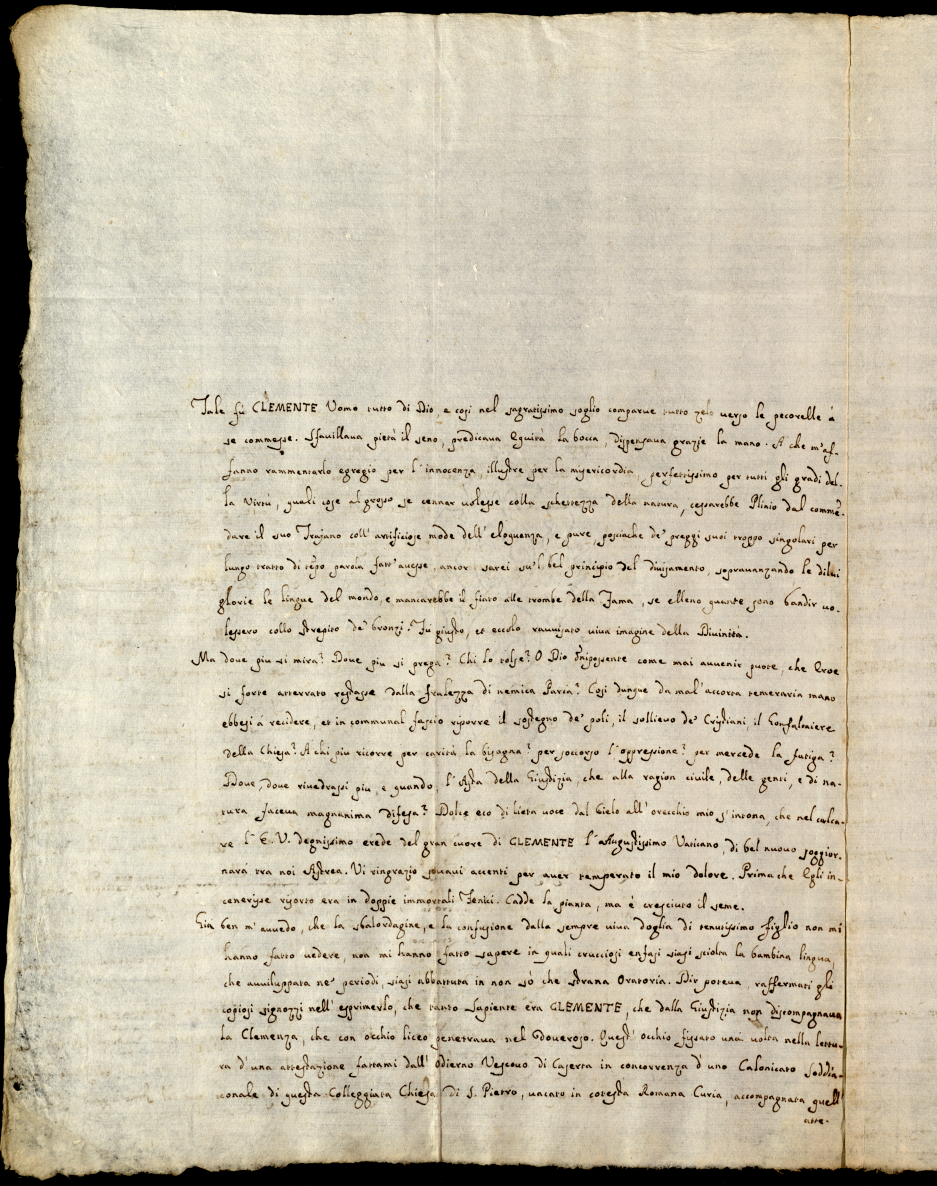 Tale fù CLEMENTE Uomo tutto di Dio, e così nel sagratissimo soglio comparve tutto zelo verso le pecorelle à
se commesse. Sfavillava pietà il seno, predicava Equità la bocca, dispensava grazie la mano. A che m'af-
fanno rammentarlo egregio per l'innocenza, illustre per la misericordia, perfettissimo per tutti gli gradi del-
la Virtù, quali cose al grosso se cennar volesse colla schettezza della natura, cessarebbe Plinio dal commē-
dare il suo Trajano coll'artificiose mode dell'eloquenza, e pure, posciache de' preggi suoi troppo singolari per
lungo tratto di tēpo parola fatt'avesse, ancor sarei su'l bel principio del divisamento, sopravanzando le di lui
glorie le lingue del mondo, e mancarebbe il fiato alle trombe della Fama, se elleno quante sono bandir vo-
lessero collo strepito de' bronzi. Fù giusto, et eccolo ravvisato viva imagine della Divinità.
Ma dove piu si mira? Dove piu si prega? Chi lo tolse? O Dio Ōnipossente come mai avvenir puote, che Eroe
si forte atterrato restasse dalla fralezza di nemica Parca? Così dunque da mal'accorta temeraria mano
ebbesi à recidere, et in communal fascio riporre il sostegno de' poli, il sollievo de' Cristiani, il Gonfaloniere
della Chiesa? A chi piu ricorre per carità la bisogna? per soccorso l'oppressione? per mercede la fatiga?
Dove, dove rivedrassi piu, e quando, l'Asta della Giustizia, che alla ragion civile, delle genti, e di na-
tura faceva magnanima difesa? Dolce eco di lieta voce dal Cielo all'orecchio mio s'intona, che nel calca-
re l'E.V. degnissimo erede del gran cuore di CLEMENTE l'Augustissimo Vaticano, di bel nuovo soggior-
narà tra noi Astrea. Vi ringrazio soavi accenti per aver temperato il mio dolore. Prima che Egli in-
cenerisse risorto era in doppie immortali Fenici. Cadde la pianta, ma è cresciuto il seme.
Già ben m'avvedo, che la sbalordagine, e la confusione dalla sempre viva doglia di tenutissimo figlio non mi
hanno fatto vedere, non mi hanno fatto sapere in quali crucciosi enfasi siasi sciolta la bambina lingua,
che avviluppata ne' periodi, siasi abbattuta in non sò che strana Oratoria. Dir poteva, raffermati gli
copiosi signozzi nell'esprimerlo, che tanto sapiente era CLEMENTE, che dalla Giustizia non discompagnava
la Clemenza, che con occhio liceo penetrava nel Doveroso. Quest'occhio fissato una volta nella lettu-
ra d'una attestazione fattami dall'odierno Vescovo di Caserta in concorrenza d'uno Calonicato Soddia-
conale di questa Colleggiata Chiesa di S. Pietro, vacato in cotesta Romana Curia, accompagnata quell'
atte-